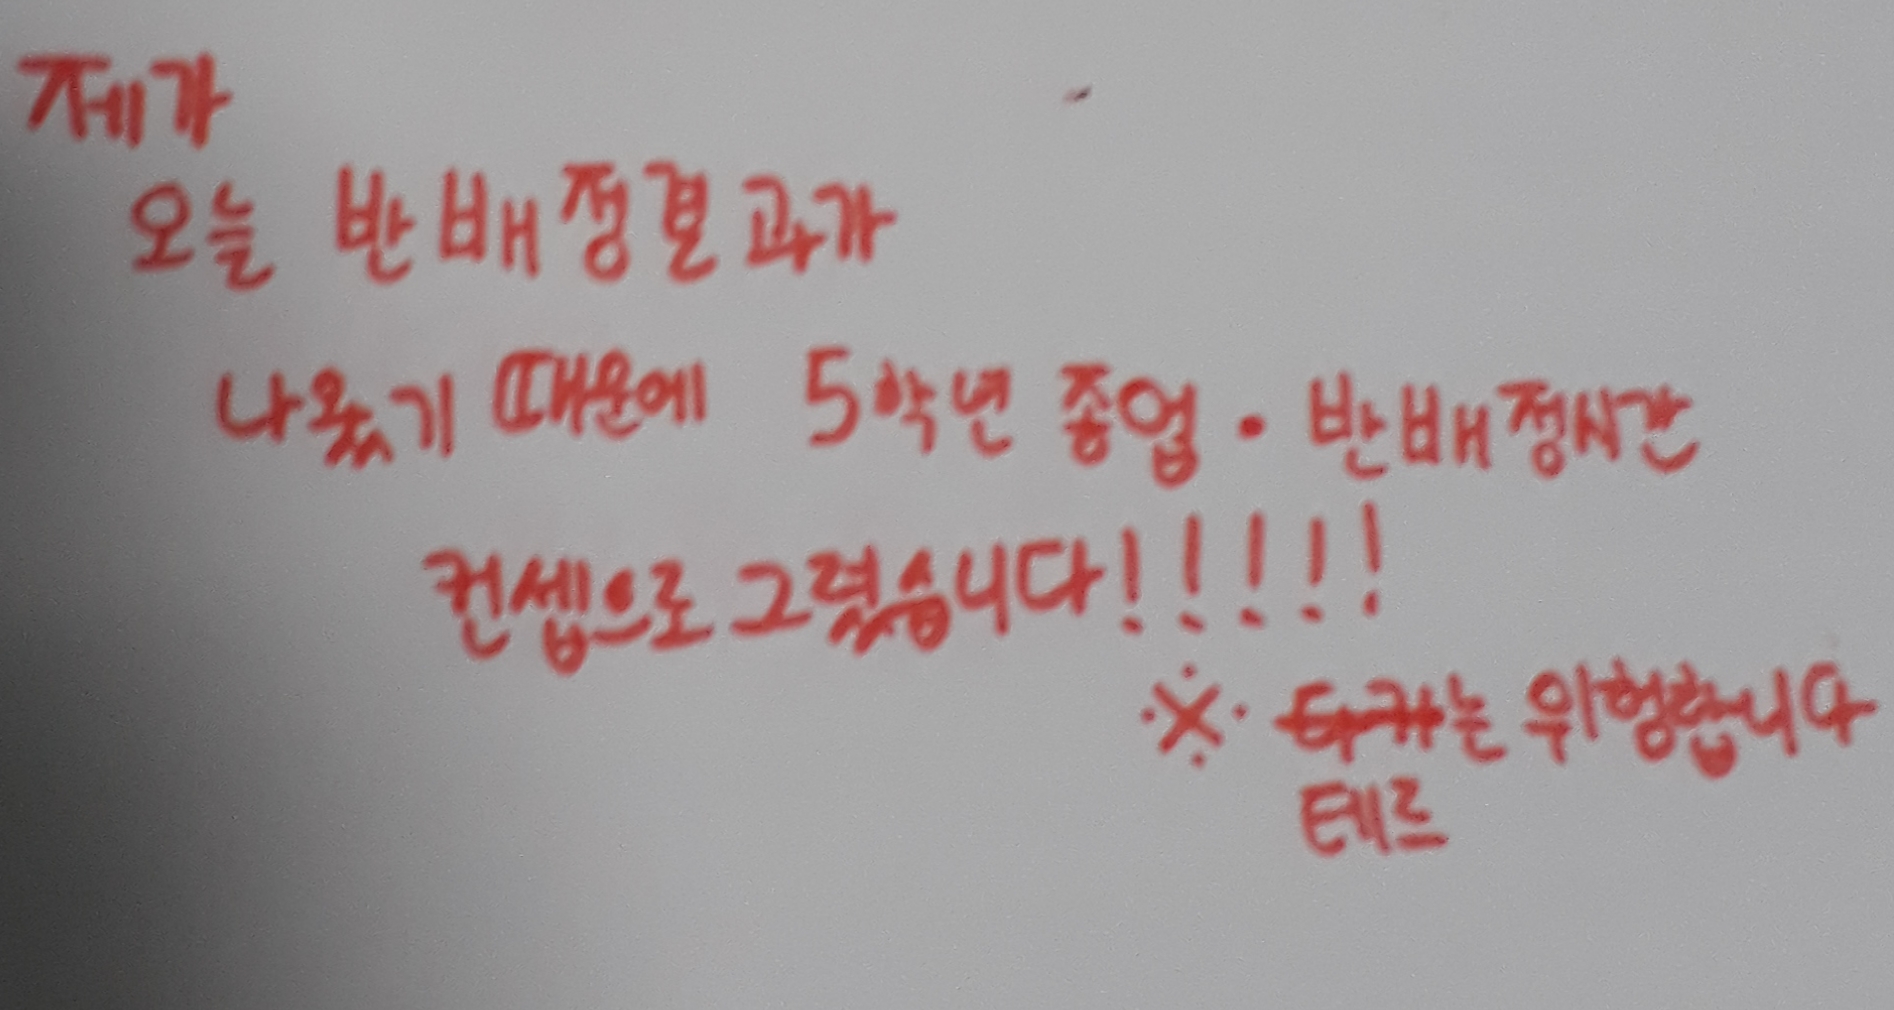 제가
오늘 반배정결과가
나왔기 때문에 5학년 종업 · 반배정시간
컨셉으로 그렸습니다!!!!!
※ 는 위험합니다
테르